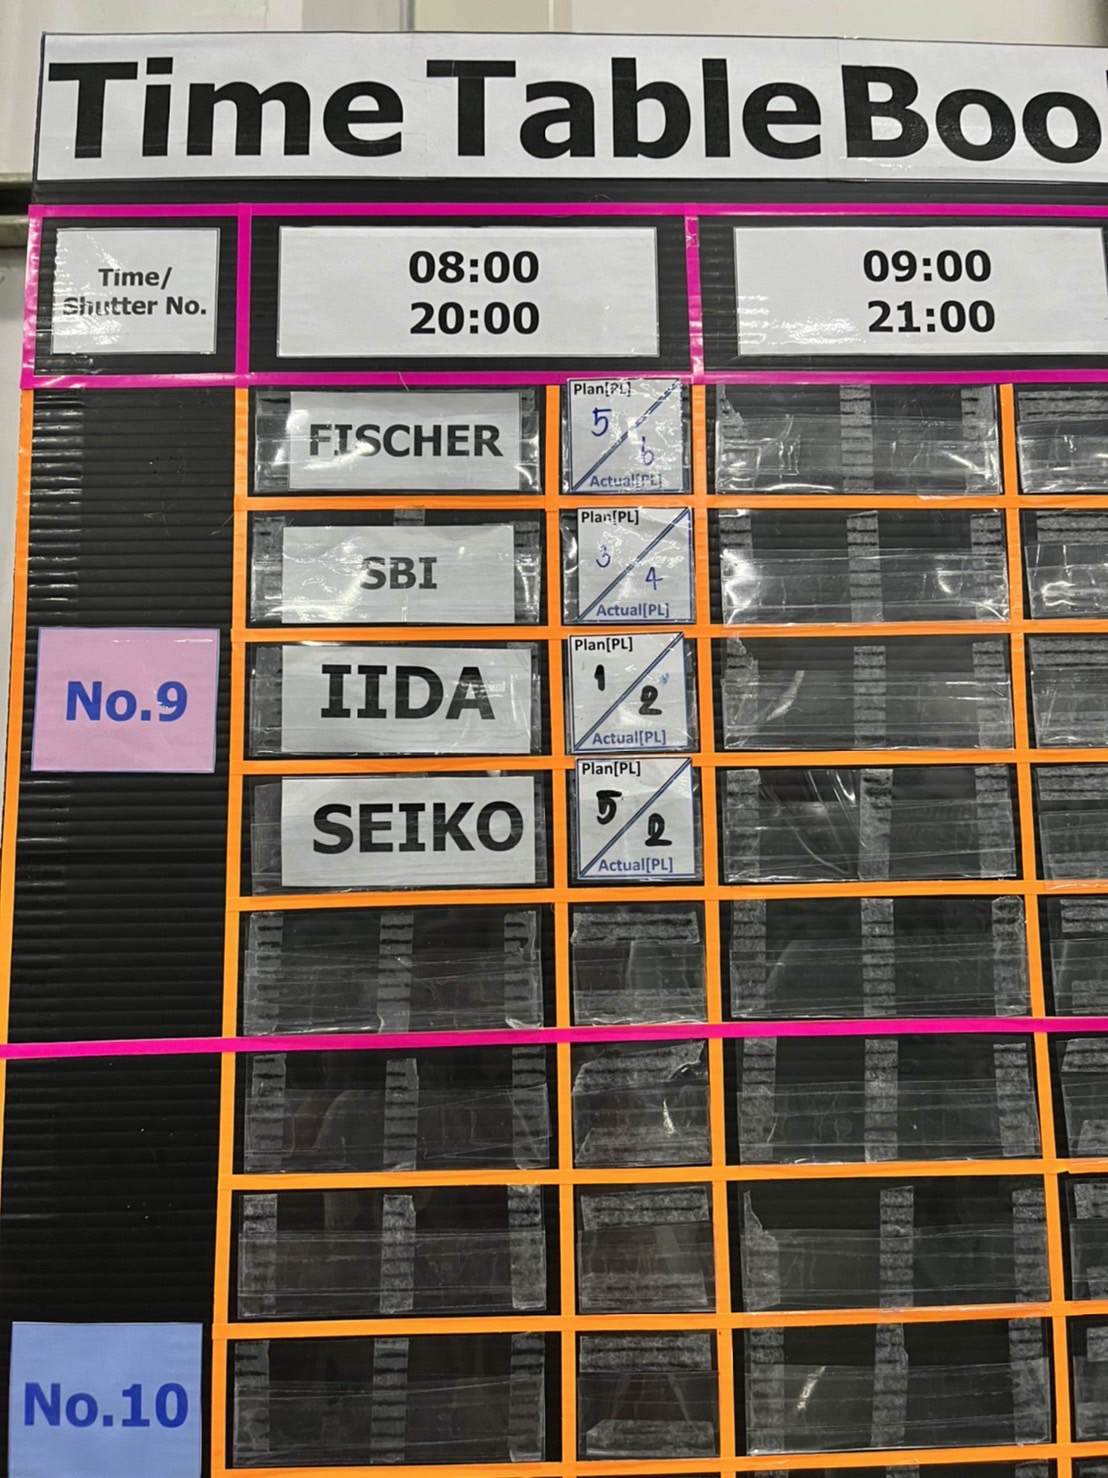 Time Table Boo
Time/
Shutter No.
08:00
20:00
09:00
21:00
FISCHER
Plan[PL]
5
6
Actual[PL]
SBI
Plan[PL]
3
4
Actual[PL]
No.9
IIDA
Plan[PL]
1
2
Actual[PL]
SEIKO
Plan[PL]
5
2
Actual[PL]
No.10